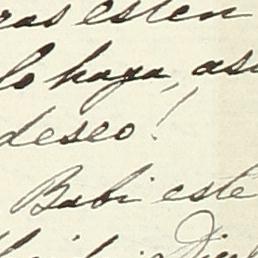 ras esten
lo haga, asi
deseo!
Babi este